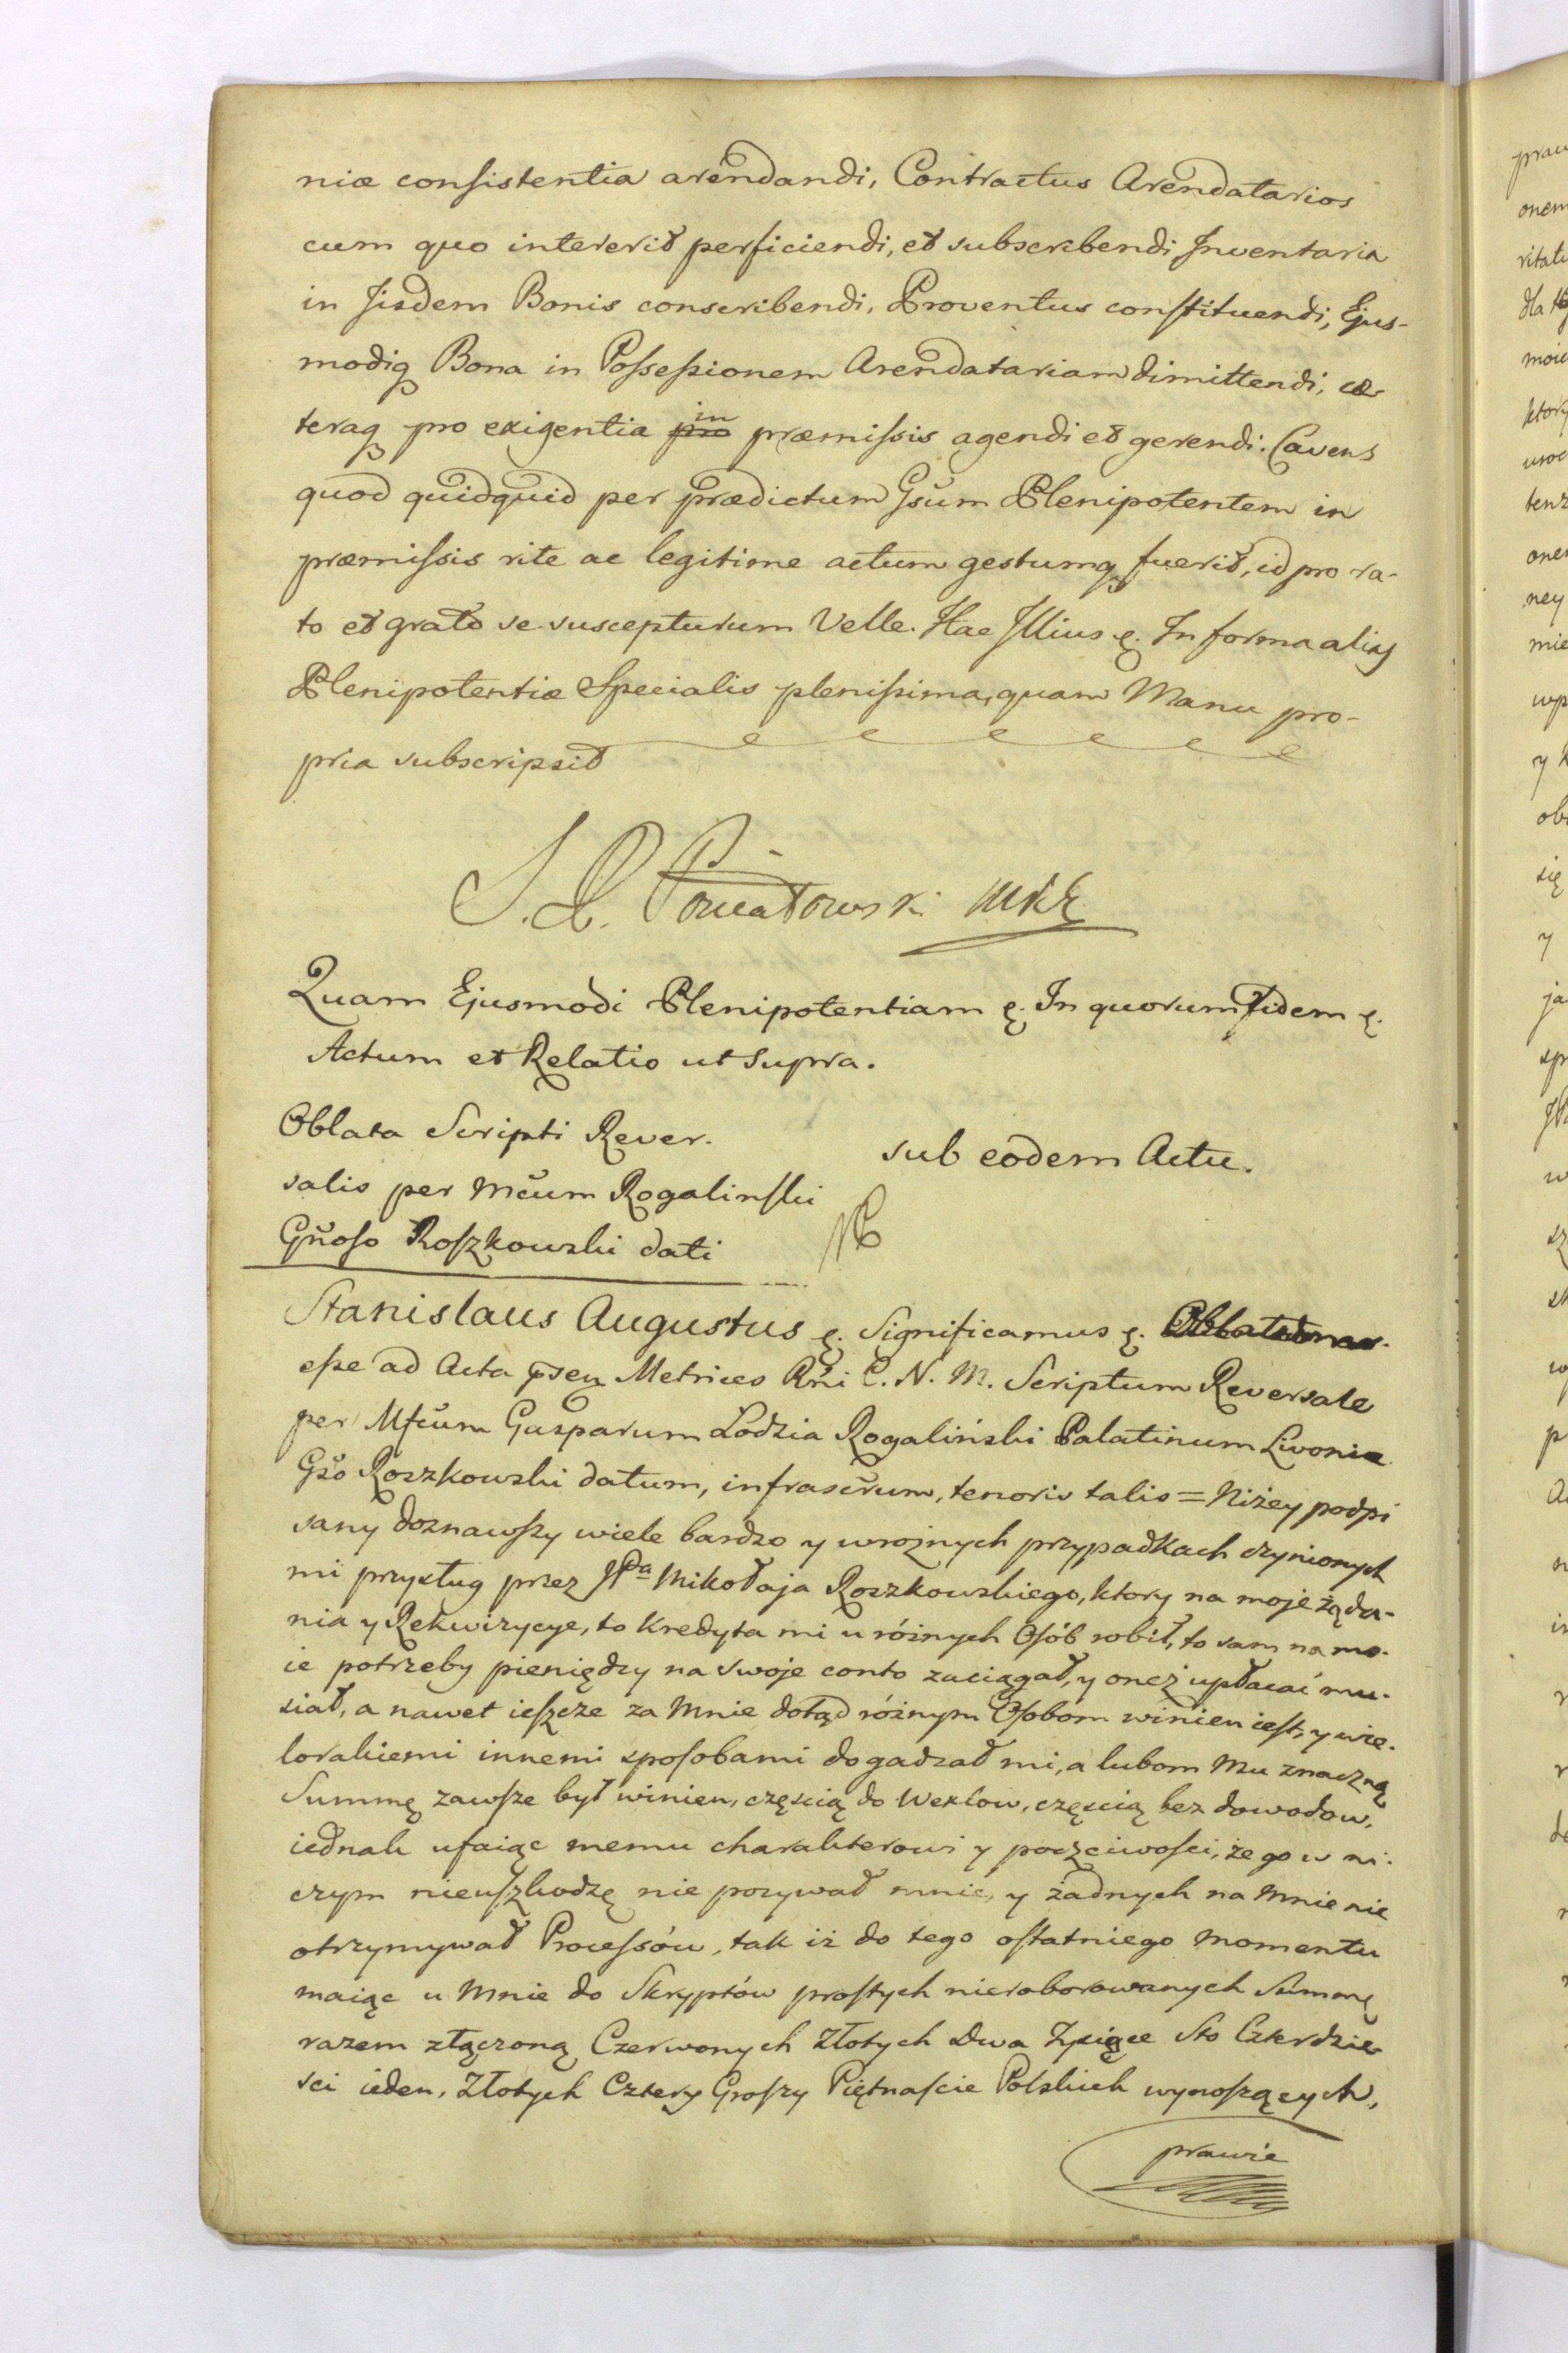 niæ consistentia arendandi, Contractus Arendatarios
cum quo intererit perficiendi, et subscribendi Inventaria
in Iisdem Bonis conscribendi, Proventus constituendi, Ejus-
modiq Bona in Possessionem Arendatariam dimittendi, cæ-
teraq pro exigentia pro in præmissis agendi et gerendi. Cavens
quod quidquid per prædictum Gsum Plenipotentem in
præmissis rite ac legitime actum gestumq fuerit, id pro ra-
to et grato se suscepturum Velle. Hac Illius ę. In forma alias
Plenipotentiæ Specialis plenissima, quam Manu pro-
pria subscripsit
S. P. Poniatowski mkę
Quam Ejusmodi Plenipotentiam ę. In quorum fidem ę.
Actum et Relatio ut supra.
Oblata Scripti Rever-
salis per Mcum Rogalinski
Gnoso Roszkowski dati
sub eodem Actu.
Stanislaus Augustus ę. Significamus ę.
esse ad Acta pñseq Metrices Rni C. N. M. Scriptum Reversale
per Mfcum Gasparum Lodzia Rogaliński Palatinum Livoniæ
Gso Roszkowski datum, infrascrum, tenoris talis = Niżey podpi
sany doznawszy wiele bardzo y wrożnych przypadkach czynionych
mi przysług przez JPa Mikołaja Roszkowskiego, ktory na moje żąda-
nia y Rekwizycye, to kredyta mi u różnych Osób robił, to sam na mo-
ie potrzeby pieniędzy na swoje conto zaciągał, y oneż upłacać mu-
siał, a nawet ieszcze za Mnie dotąd różnym Osobom winien iest, y wie-
lorakiemi innemi sposobami dogadzał mi, a lubom Mu znaczną
Summę zawsze był winien, częscią do Wexlow, częscią bez dowodow,
iednak ufaiąc memu charakterowi y poczciwości, że go w ni-
czym nieuszkodzę nie pozywał mnie, y żadnych na Mnie nie
otrzymywał Processów, tak iż do tego ostatniego momentu
maiąc u Mnie do Skryptów prostych nieroborowanych Summę
razem złączoną Czerwonych Złotych Dwa Tysiące Sto Czterdzie-
sci ieden, Złotych Cztery Groszy Piętnascie Polskich wynoszących,
prawie